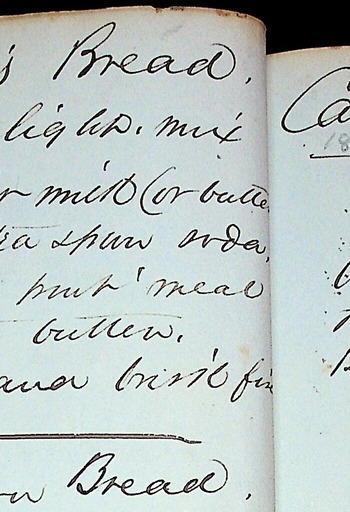 's Bread.
light. mix
r milk (or butte
tea spun soda.
pint meal
butter.
and brisk fir
n Bread.
Ca
18